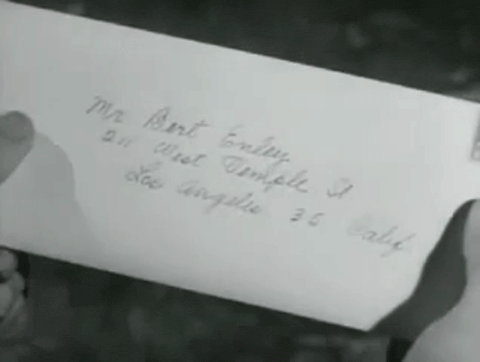 Mr Bert Enley
211 West Temple St
Los Angeles 36 Calif